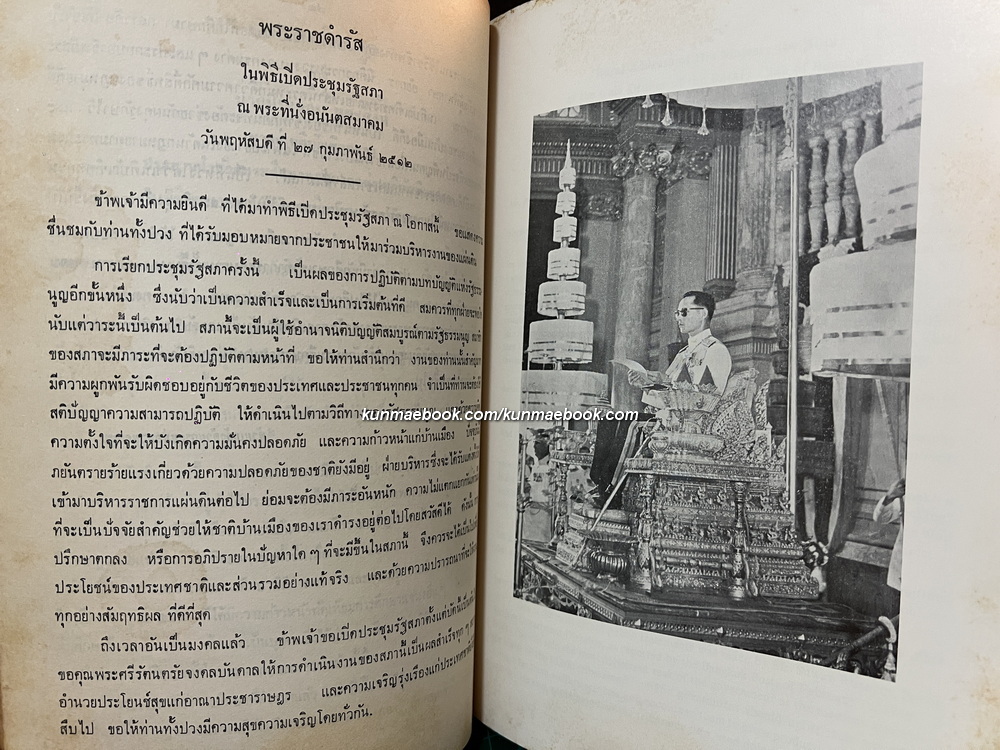 พระราชดำรัส
ในพิธีเปิดประชุมรัฐสภา
ณ พระที่นั่งอนันตสมาคม
วันพฤหัสบดี ที่ ๒๗ กุมภาพันธ์ ๒๕๑๒
ข้าพเจ้ามีความยินดี ที่ได้มาทำพิธีเปิดประชุมรัฐสภา ณ โอกาสนี้ ขอแสดงความ
ชื่นชมกับท่านทั้งปวง ที่ได้รับมอบหมายจากประชาชนให้มาร่วมบริหารงานของแผ่นดิน
การเรียกประชุมรัฐสภาครั้งนี้ เป็นผลของการปฏิบัติตามบทบัญญัติแห่งรัฐธรรม
นูญอีกขั้นหนึ่ง ซึ่งนับว่าเป็นความสำเร็จและเป็นการเริ่มต้นที่ดี สมควรที่ทุกฝ่ายจะ
นับแต่วาระนี้เป็นต้นไป สภานี้จะเป็นผู้ใช้อำนาจนิติบัญญัติสมบูรณ์ตามรัฐธรรมนูญ สมาชิก
ของสภาจะมีภาระที่จะต้องปฏิบัติตามหน้าที่ ขอให้ท่านสำนึกว่า งานของท่านนั้นสำคัญมาก
มีความผูกพันรับผิดชอบอยู่กับชีวิตของประเทศและประชาชนทุกคน จำเป็นที่ท่านจะต้อง
สติปัญญาความสามารถปฏิบัติ ให้ดำเนินไปตามวิถีทาง
kunmaebook.com/kunmaebook.com
ความตั้งใจที่จะให้บังเกิดความมั่นคงปลอดภัย และความก้าวหน้าแก่บ้านเมือง ปัจจุบันนี้
ภยันตรายร้ายแรงเกี่ยวด้วยความปลอดภัยของชาติยังมีอยู่ ฝ่ายบริหารซึ่งจะได้รับ
เข้ามาบริหารราชการแผ่นดินต่อไป ย่อมจะต้องมีภาระอันหนัก ความไม่แตกแยกกัน
ที่จะเป็นปัจจัยสำคัญช่วยให้ชาติบ้านเมืองของเราดำรงอยู่ต่อไปโดยสวัสดีได้ ดังนั้น
ปรึกษาตกลง หรือการอภิปรายในปัญหาใด ๆ ที่จะมีขึ้นในสภานี้ จึงควรจะได้เป็นไป
ประโยชน์ของประเทศชาติและส่วนรวมอย่างแท้จริง และด้วยความปรารถนาที่จะให้
ทุกอย่างสัมฤทธิผล ที่ดีที่สุด
ถึงเวลาอันเป็นมงคลแล้ว ข้าพเจ้าขอเปิดประชุมรัฐสภาตั้งแต่บัดนี้เป็นต้น
ขอคุณพระศรีรัตนตรัยจงดลบันดาลให้การดำเนินงานของสภานี้เป็นผลสำเร็จทุก ๆ
อำนวยประโยชน์สุขแก่อาณาประชาราษฎร และความเจริญรุ่งเรืองแก่ประเทศชาติ
สืบไป ขอให้ท่านทั้งปวงมีความสุขความเจริญโดยทั่วกัน.